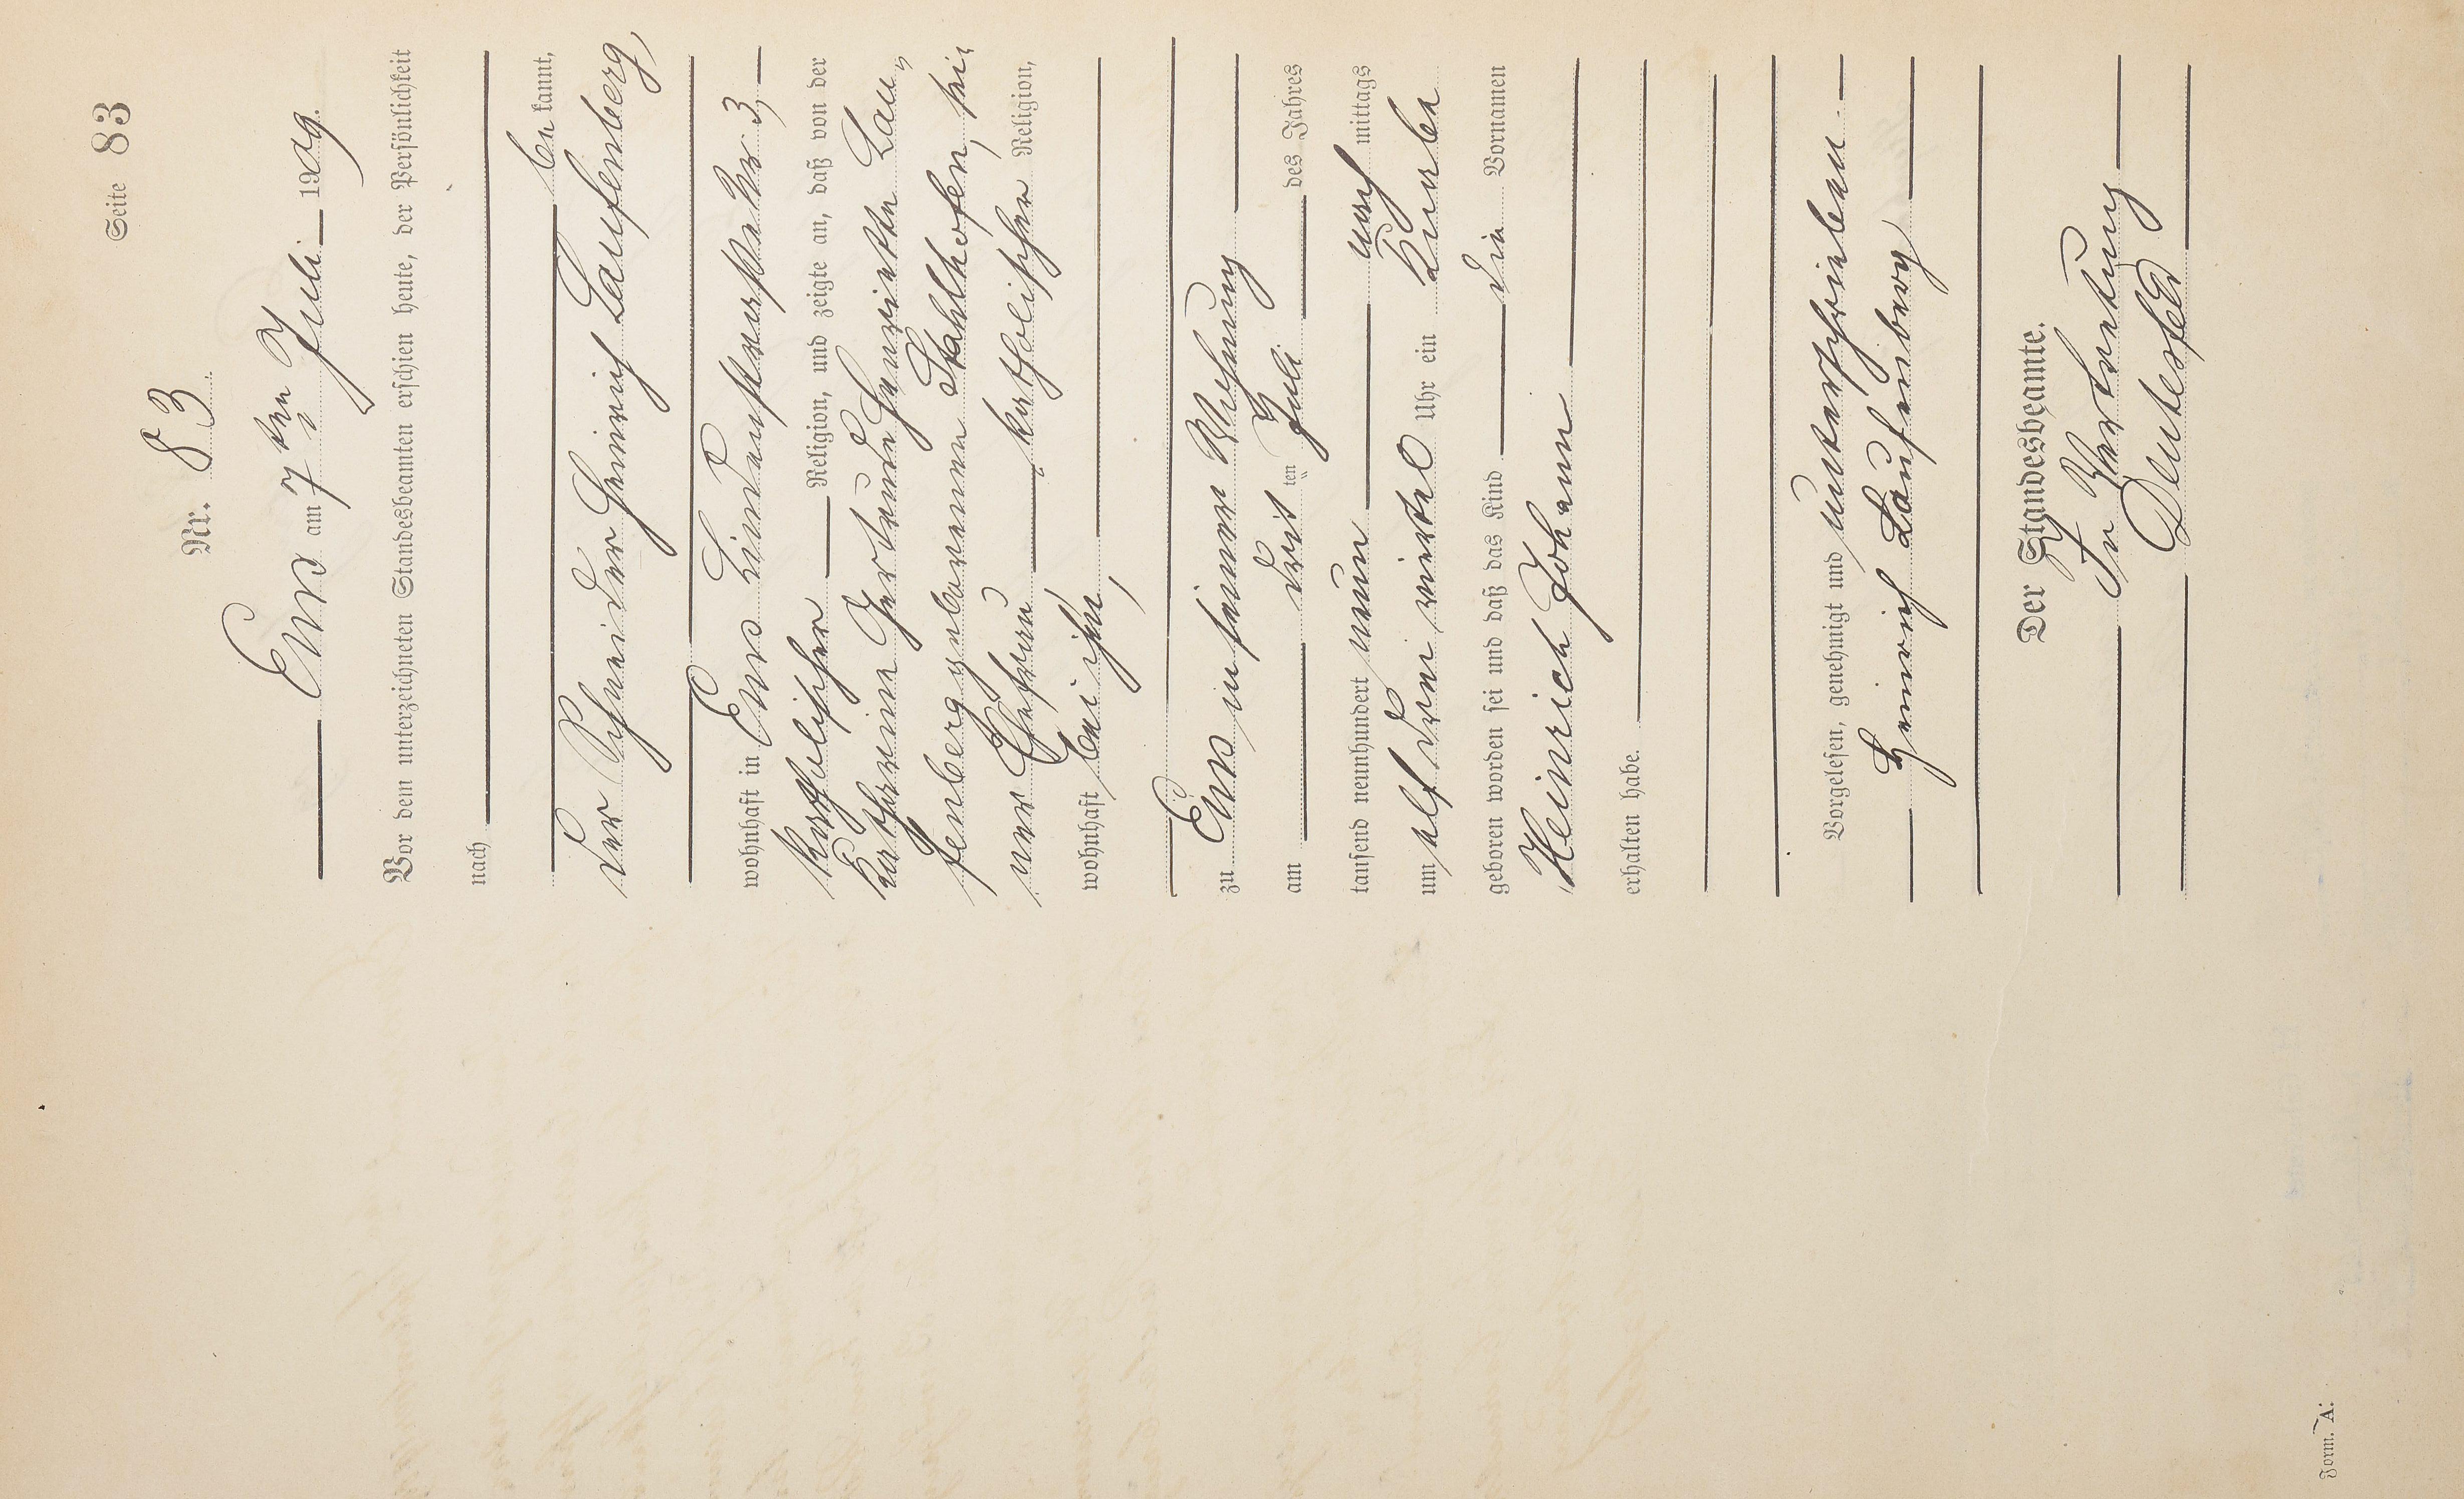 Seite 83
Nr. 83.
Ems am 7ten Juli 1909.
Vor dem unterzeichneten Standesbeamten erschien heute, der Persönlichkeit
nach
be kannt,
der Schneider Heinrich Laufenberg,
wohnhaft in Ems Lindenstraße Nr 3,
katholischer Religion, und zeigte an, daß von der
Katharine Gertrude Henriette Lau„
fenberg geborenen Stahlhofen, sei„
ner Ehefrau katholischer Religion,
wohnhaft bei ihm,
zu Ems in seiner Wohnung
am drit ten Juli des Jahres
tausend neunhundert neun nach mittags
um elf drei viertel Uhr ein Knabe
geboren worden sei und daß das Kind die Vornamen
Heinrich Johann
erhalten habe.
Vorgelesen, genehmigt und unterschrieben
Heinrich Laufenberg
Der Standesbeamte.
In Vertretung
Form. A.